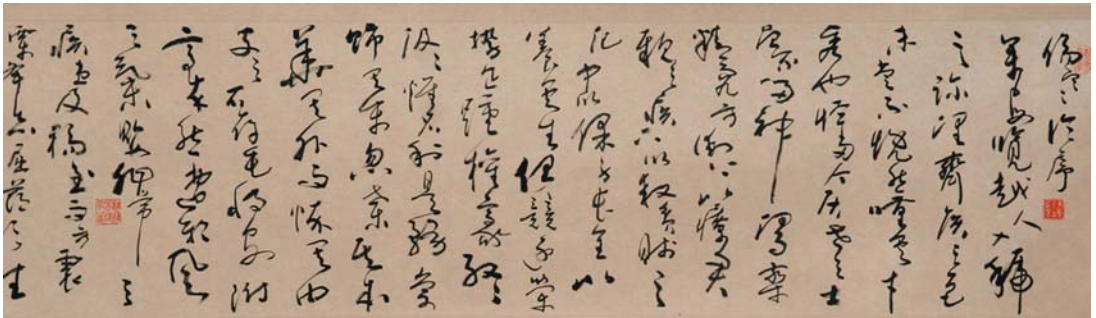 傷寒論序
余每覽越人入虢
之診望齊侯之色
未嘗不慨然嘆其才
秀也怪當今居世之士
曾不留神醫藥
精究方術上以療君
親之疾下以救貧賤之
厄中以保身長全以
養其生但競逐榮
勢企踵權豪孜孜
汲汲惟名利是務崇
飾其末忽棄其本
華其外而悴其內
皮之不存毛將安附
焉卒然遭邪風
之氣嬰非常之
疾患及禍至而方震
慄屈節